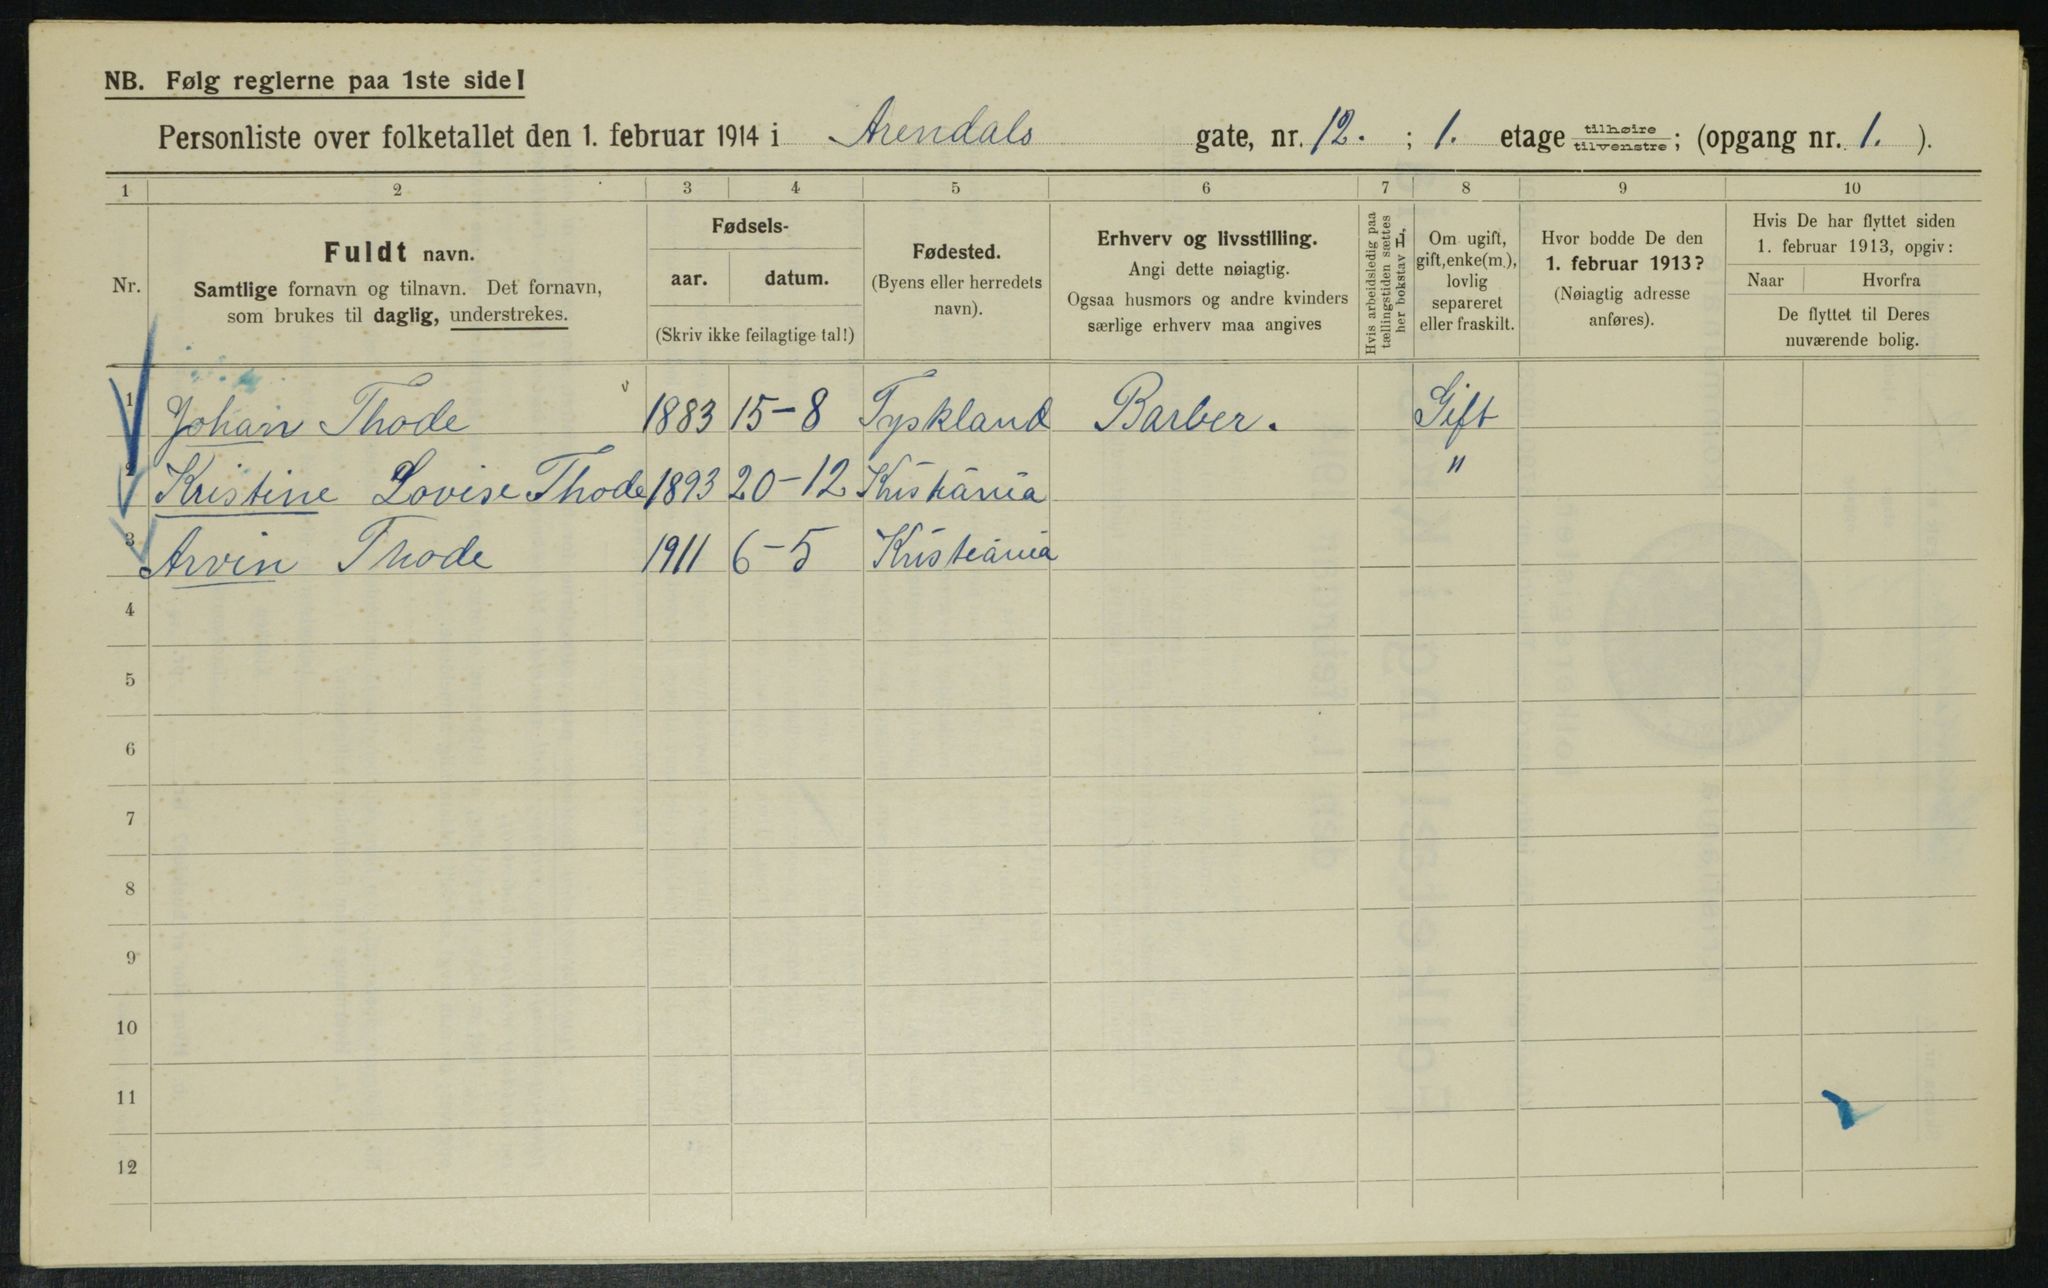 NB. Følg reglerne paa 1ste side!
Personliste over folketallet den 1. februar 1914 i Arendals gate, nr. 12. ; 1. etage tilhøire tilvenstre; (opgang nr. 1. ).
1 2 3 4 5 6 7 8 9 10
Nr.
Fuldt navn.
Samtlige fornavn og tilnavn. Det fornavn,
som brukes til daglig, understrekes.
Fødsels-
aar. datum.
(Skriv ikke feilagtige tal!)
Fødested.
(Byens eller herredets
navn).
Erhverv og livsstilling.
Angi dette nøiagtig.
Ogsaa husmors og andre kvinders
særlige erhverv maa angives
Hvis arbeidsledig paa
tællingstiden sættes
her bokstav L,
Om ugift,
gift, enke(m.),
lovlig
separeret
eller fraskilt.
Hvor bodde De den
1. februar 1913?
(Nøiagtig adresse
anføres).
Hvis De har flyttet siden
1. februar 1913, opgiv:
Naar Hvorfra
De flyttet til Deres
nuværende bolig.
1 Johan Thode 1883 15-8 Tyskland Barber. Gift
2 Kristine Lovise Thode 1893 20-12 Kristiania "
3 Arvin Thode 1911 6-5 Kristiania
4
5
6
7
8
9
10
11
12